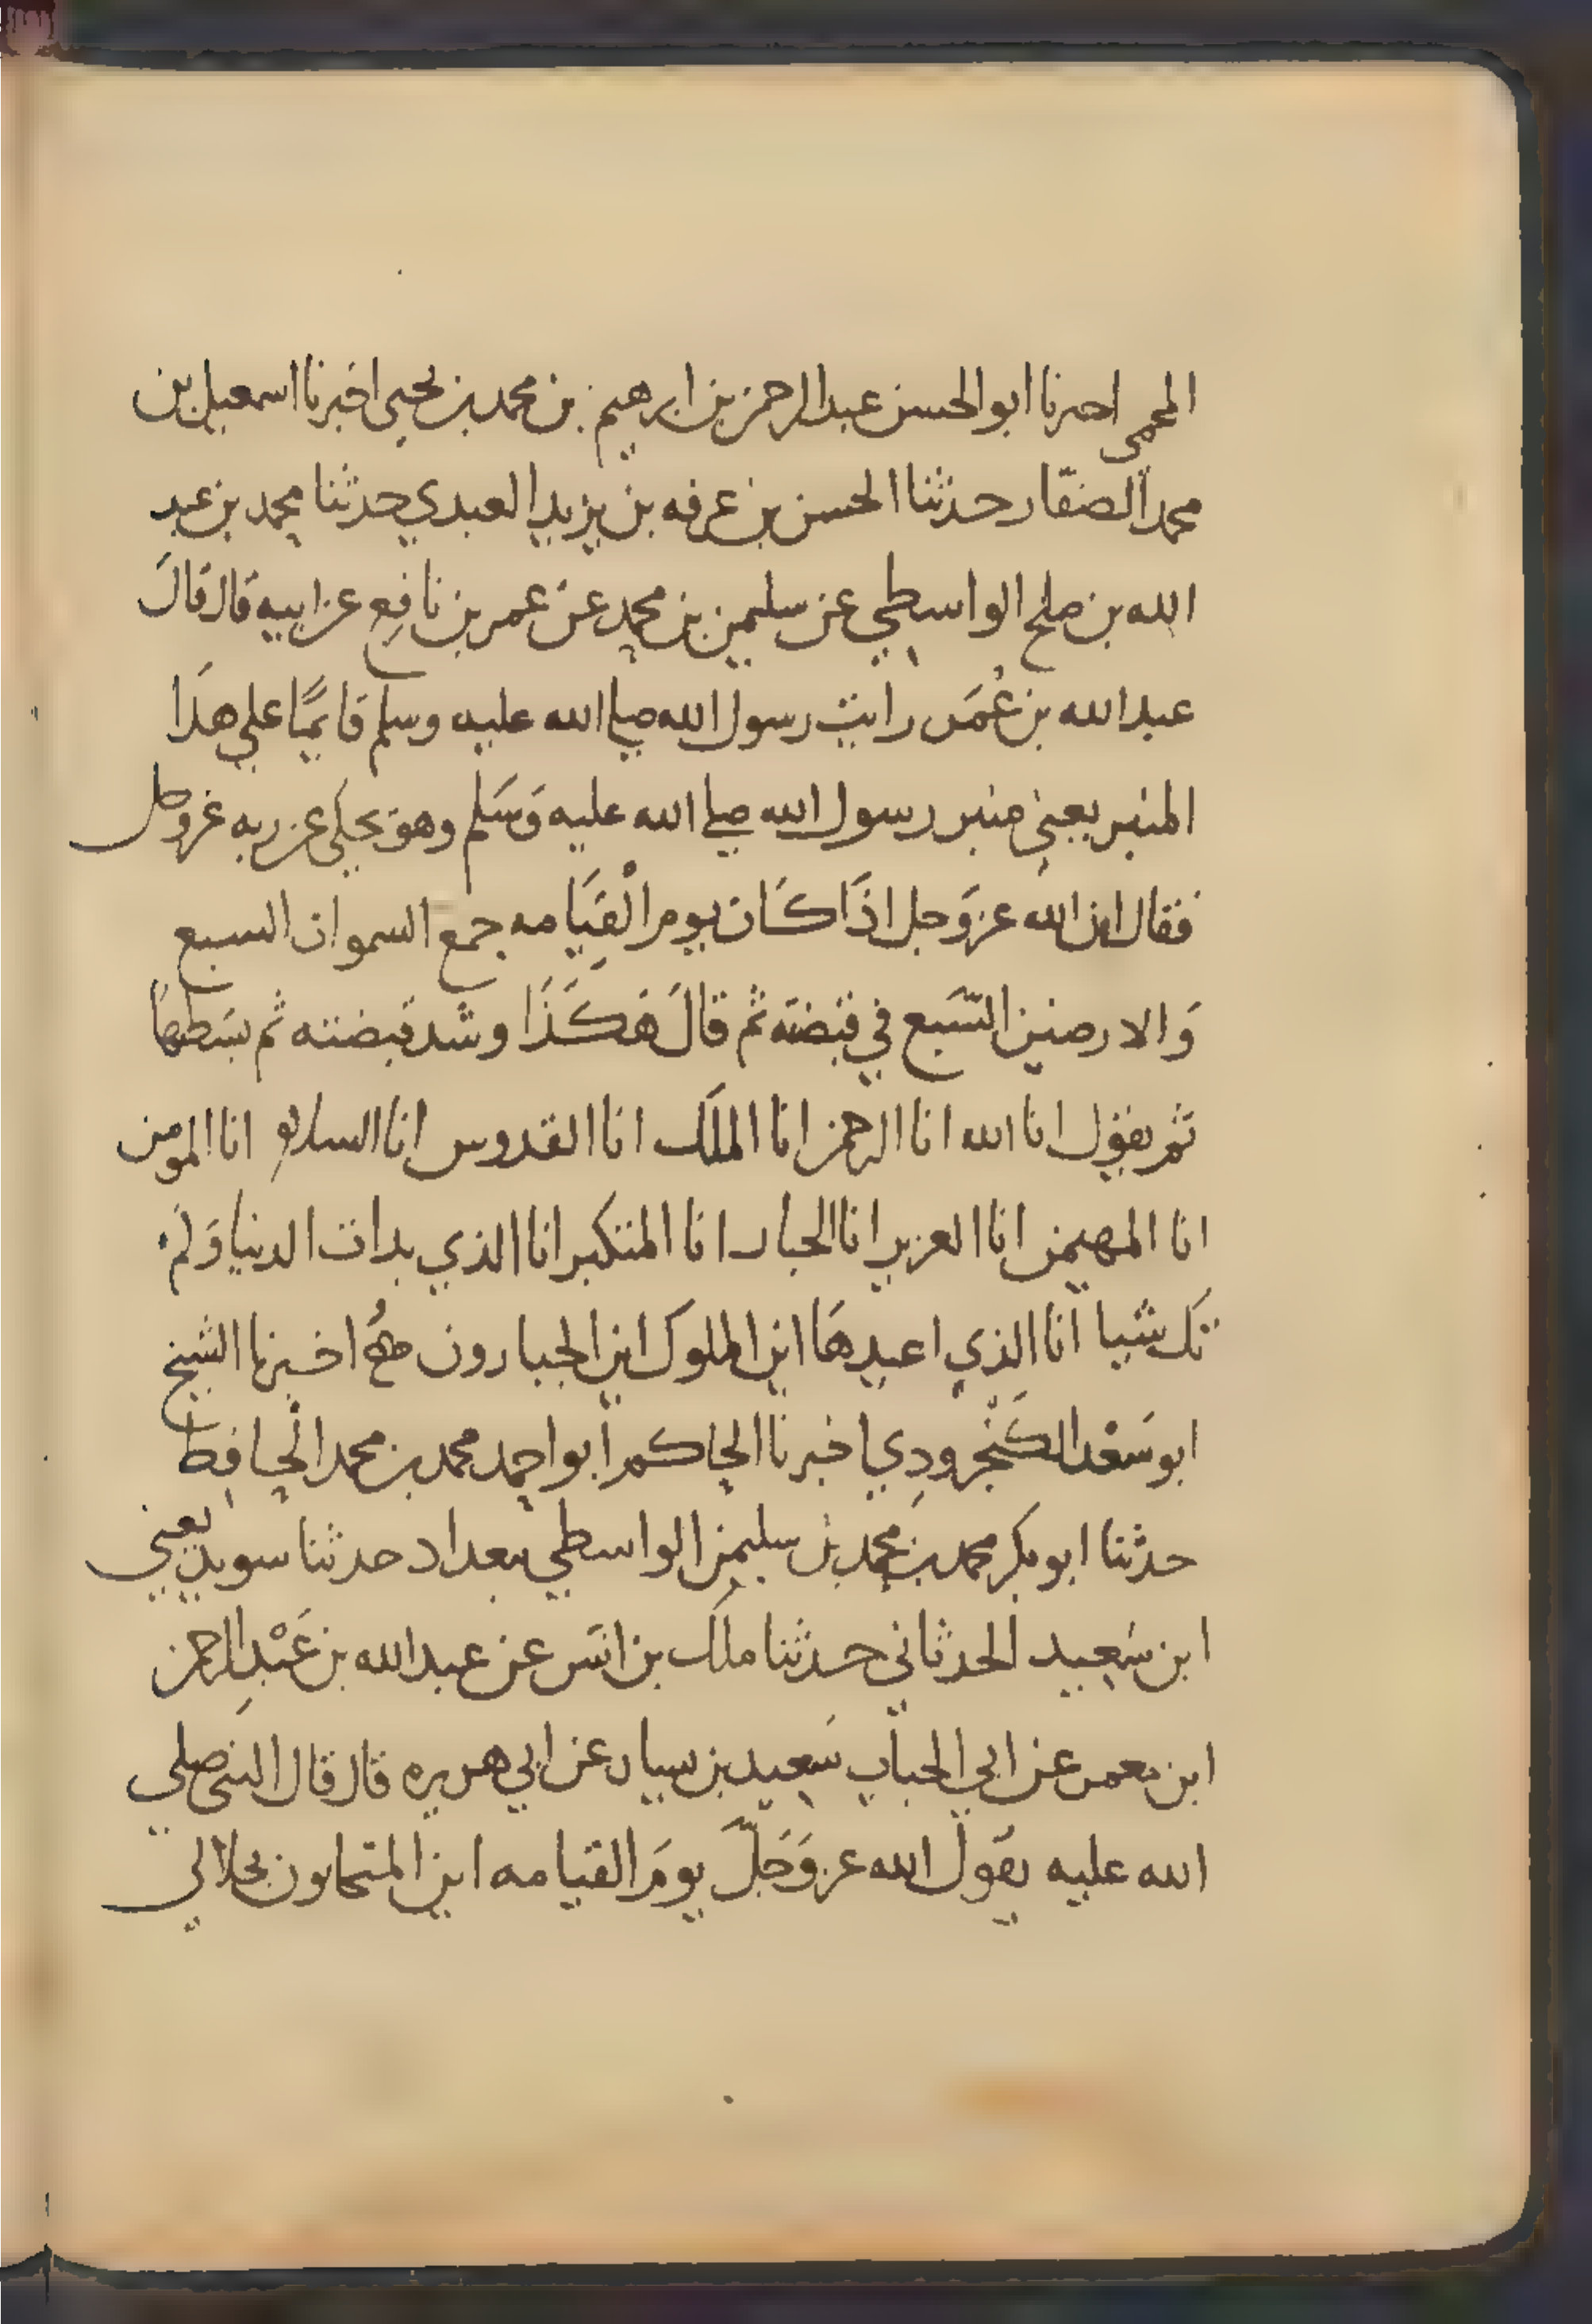 المحمي اخبرنا ابو الحسن عبد الرحمن بن ابرهيم بن محمد بن يحيى اخبرنا اسمعيل بن
محمد الصفّار حدثنا الحسن بن عرفه بن يزيد العبدي حدثنا محمد بن عبد
الله بن صلح الواسطي عن سليمن بن محمد عن عمر بن نافع عن ابيه قال قالَ
عبد الله بن عُمَر رايت رسول الله صلى الله عليه وسلم قايمًا على هذَا
المنبر يعني منبر رسول الله صلى الله عليه وَسَلم وهو يحكي عن ربه عز وجل
فقال ان الله عز وَجل اذَا كَان يوم الْقِيَامه جمع السموات السبع
وَالارضين السَّبع في قبضته ثم قالَ هَكَذَا وشد قبضته ثم بسَطها
ثم يقول انا الله انا الرحمن انا الملك انا القدوس انا السلام انا المومن
انا المهيمن انا العزيز انا الجبار انا المتكبر انا الذي بدات الدنيا وَلم
تك شيا انا الذي اعيدهَا اين الملوك اين الجبارون اخبرنا الشيخ
ابو سَعْد الكَنْجرودِي اخبرنا الحاكم ابو احمد محمد بن محمد الحافظ
حدثنا ابو بكر محمد بن محمد بن سليمن الواسطي ببغداد حدثنا سويد يعني
ابن سَعِيد الحدثاني حدثنا ملك بن انس عن عبد الله بن عَبْدِ الرحمن
ابن معمر عن ابي الحباب سَعِيد بن يسار عن ابي هريره قال قال النبي صلى
الله عليه يقول الله عز وَجَلَّ يومَ القيامه اين المتحابون بجلالي